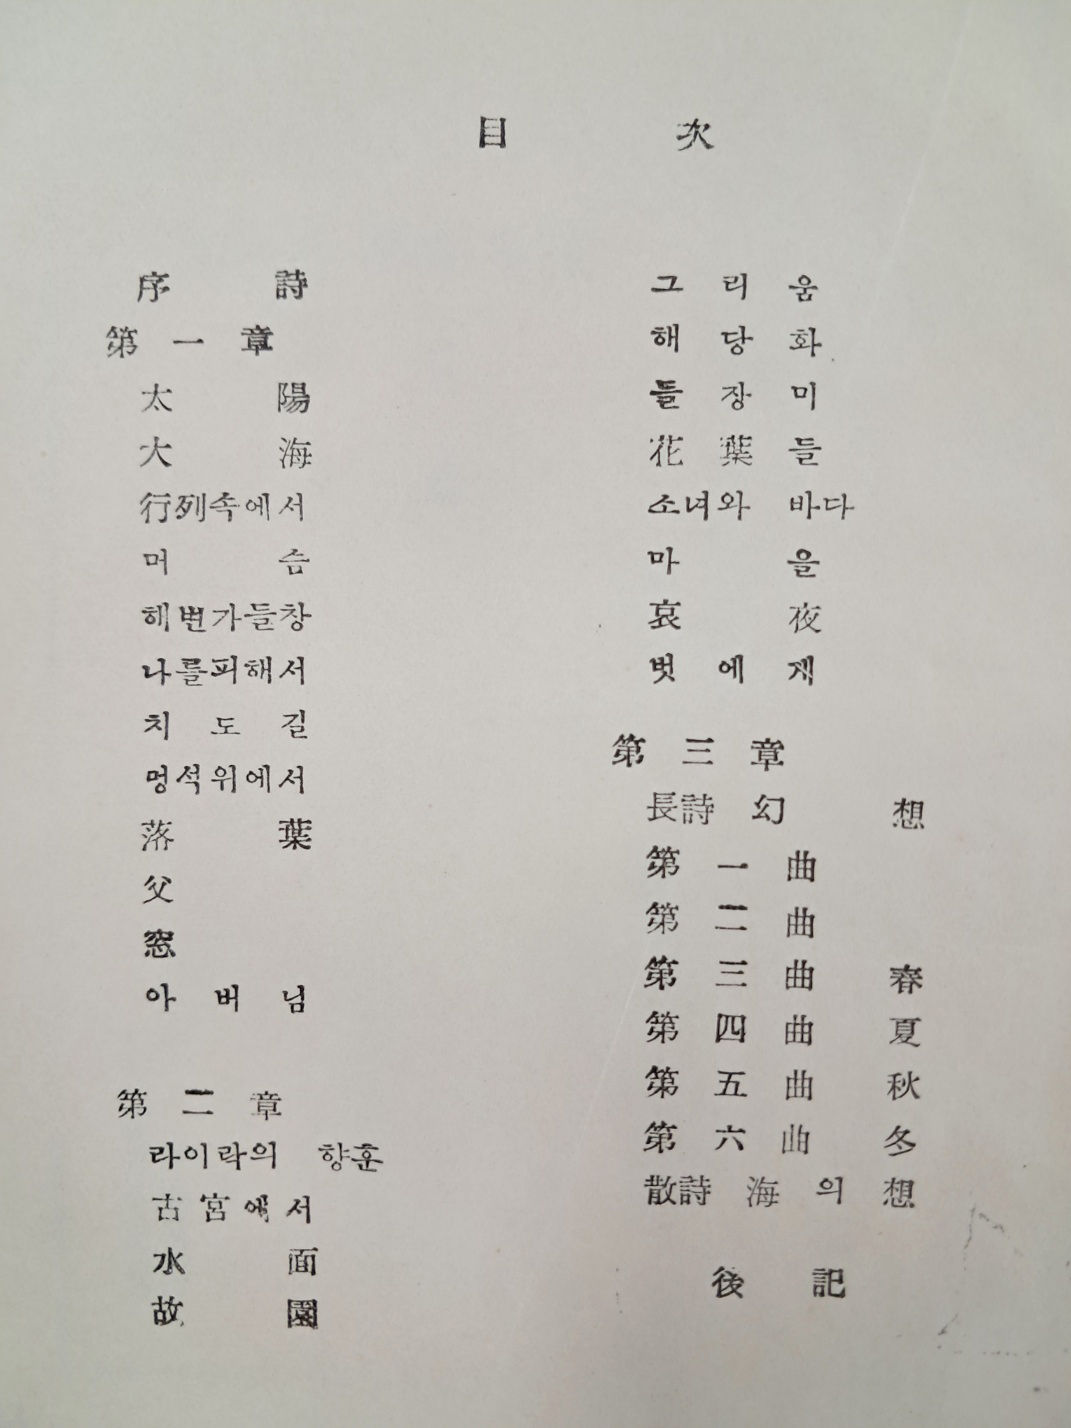 目 次
序 詩
第 一 章
太 陽
大 海
行列속에서
머 슴
해변가들창
나를피해서
치 도 길
멍석위에서
落 葉
父
窓
아 버 님
第 二 章
라이락의 향훈
古宮에서
水 面
故 園
그 리 움
해 당 화
들 장 미
花 葉 들
소녀와 바다
마 을
哀 夜
벗 에 게
第 三 章
長詩 幻 想
第 一 曲
第 二 曲
第 三 曲 春
第 四 曲 夏
第 五 曲 秋
第 六 曲 冬
散詩 海 의 想
後 記